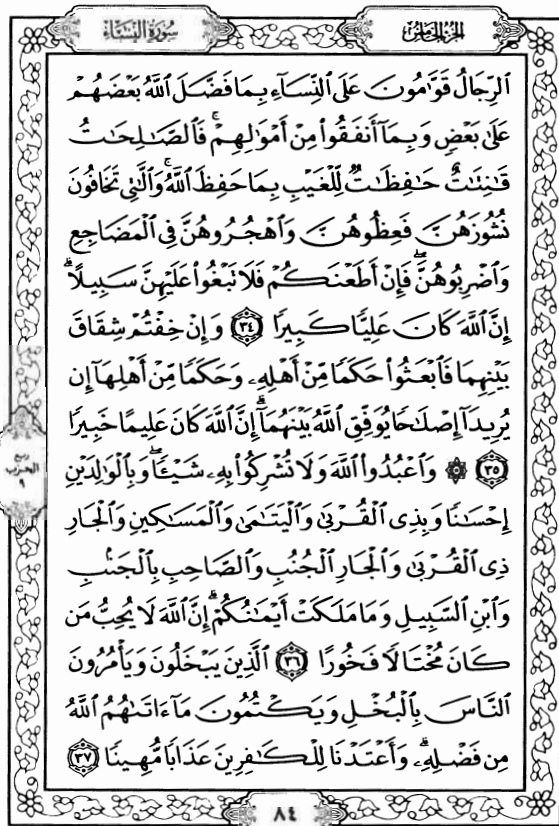 سُورَةُ النِّسَاءِ
الجزء الخامس
ٱلرِّجَالُ قَوَّٰمُونَ عَلَى ٱلنِّسَآءِ بِمَا فَضَّلَ ٱللَّهُ بَعْضَهُمْ
عَلَىٰ بَعْضٍ وَبِمَآ أَنفَقُوا۟ مِنْ أَمْوَٰلِهِمْ ۚ فَٱلصَّٰلِحَٰتُ
قَٰنِتَٰتٌ حَٰفِظَٰتٌ لِّلْغَيْبِ بِمَا حَفِظَ ٱللَّهُ ۚ وَٱلَّٰتِى تَخَافُونَ
نُشُوزَهُنَّ فَعِظُوهُنَّ وَٱهْجُرُوهُنَّ فِى ٱلْمَضَاجِعِ
وَٱضْرِبُوهُنَّ ۖ فَإِنْ أَطَعْنَكُمْ فَلَا تَبْغُوا۟ عَلَيْهِنَّ سَبِيلًا ۗ
إِنَّ ٱللَّهَ كَانَ عَلِيًّا كَبِيرًا ٣٤ وَإِنْ خِفْتُمْ شِقَاقَ
بَيْنِهِمَا فَٱبْعَثُوا۟ حَكَمًا مِّنْ أَهْلِهِۦ وَحَكَمًا مِّنْ أَهْلِهَآ إِن
يُرِيدَآ إِصْلَٰحًا يُوَفِّقِ ٱللَّهُ بَيْنَهُمَآ ۗ إِنَّ ٱللَّهَ كَانَ عَلِيمًا خَبِيرًا
٣٥ ۞ وَٱعْبُدُوا۟ ٱللَّهَ وَلَا تُشْرِكُوا۟ بِهِۦ شَيْـًٔا ۖ وَبِٱلْوَٰلِدَيْنِ
إِحْسَٰنًا وَبِذِى ٱلْقُرْبَىٰ وَٱلْيَتَٰمَىٰ وَٱلْمَسَٰكِينِ وَٱلْجَارِ
ذِى ٱلْقُرْبَىٰ وَٱلْجَارِ ٱلْجُنُبِ وَٱلصَّاحِبِ بِٱلْجَنۢبِ
وَٱبْنِ ٱلسَّبِيلِ وَمَا مَلَكَتْ أَيْمَٰنُكُمْ ۗ إِنَّ ٱللَّهَ لَا يُحِبُّ مَن
كَانَ مُخْتَالًا فَخُورًا ٣٦ ٱلَّذِينَ يَبْخَلُونَ وَيَأْمُرُونَ
ٱلنَّاسَ بِٱلْبُخْلِ وَيَكْتُمُونَ مَآ ءَاتَىٰهُمُ ٱللَّهُ
مِن فَضْلِهِۦ ۗ وَأَعْتَدْنَا لِلْكَٰفِرِينَ عَذَابًا مُّهِينًا ٣٧
ربع
الحزب
٩
٨٤